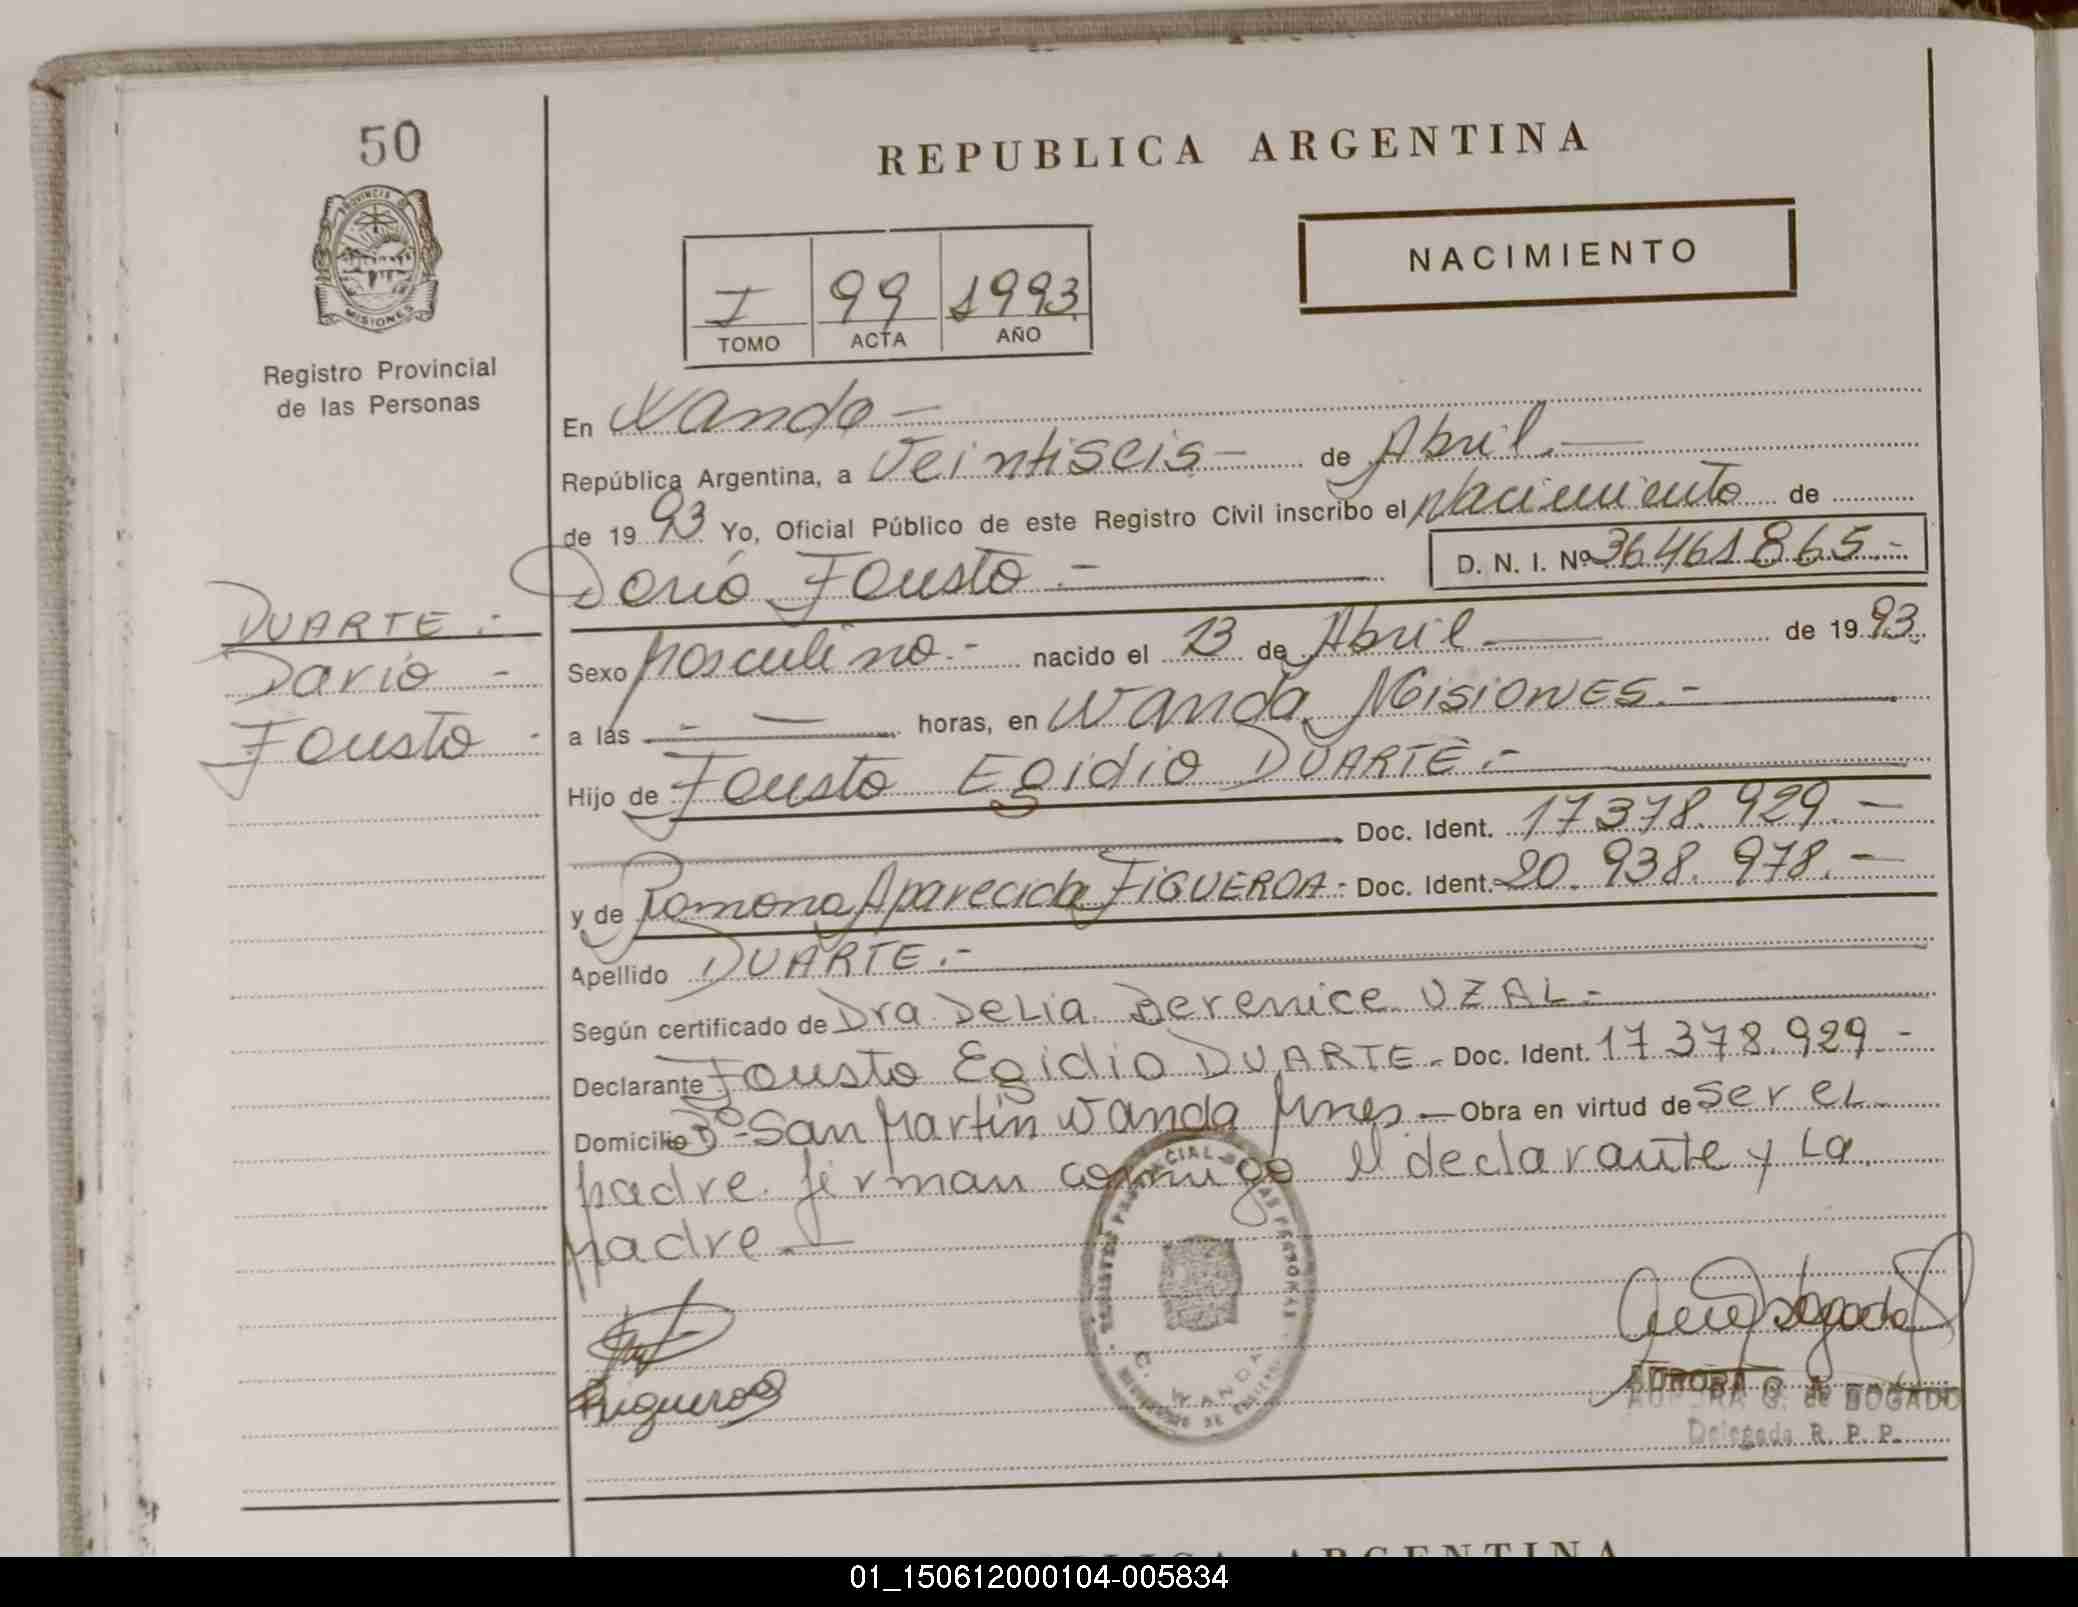 50
REPUBLICA ARGENTINA
PROVINCIA DE
MISIONES
NACIMIENTO
I 99 1993
TOMO ACTA AÑO
Registro Provincial
de las Personas
En Wanda -
República Argentina, a Veintiseis - de Abril. -
de 19 93 Yo, Oficial Público de este Registro Civil inscribo el Nacimiento de
Darío Fausto . - D. N. I. Nº 36461865. -
DUARTE . -
Darío -
Fausto -
Sexo Masculino - nacido el 13 de Abril - de 19 93.
a las - — horas, en Wanda Misiones. -
Hijo de Fausto Egidio DUARTE. -
Doc. Ident. 17 378. 929. -
y de Ramona Aparecida FIGUEROA - Doc. Ident. 20. 938. 978. -
Apellido DUARTE. -
Según certificado de Dra Delia Berenice UZAL -
Declarante Fausto Egidio DUARTE - Doc. Ident. 17 378. 929 -
Domicilio Bº - San Martín Wanda Mnes - Obra en virtud de ser el
padre. firman conmigo el declarante y la
madre —
Figueroa
REGISTRO PROVINCIAL DE LAS PERSONAS
WANDA
AURORA G. de BOGADO
Delegada R. P. P.
REPUBLICA ARGENTINA
01_150612000104-005834